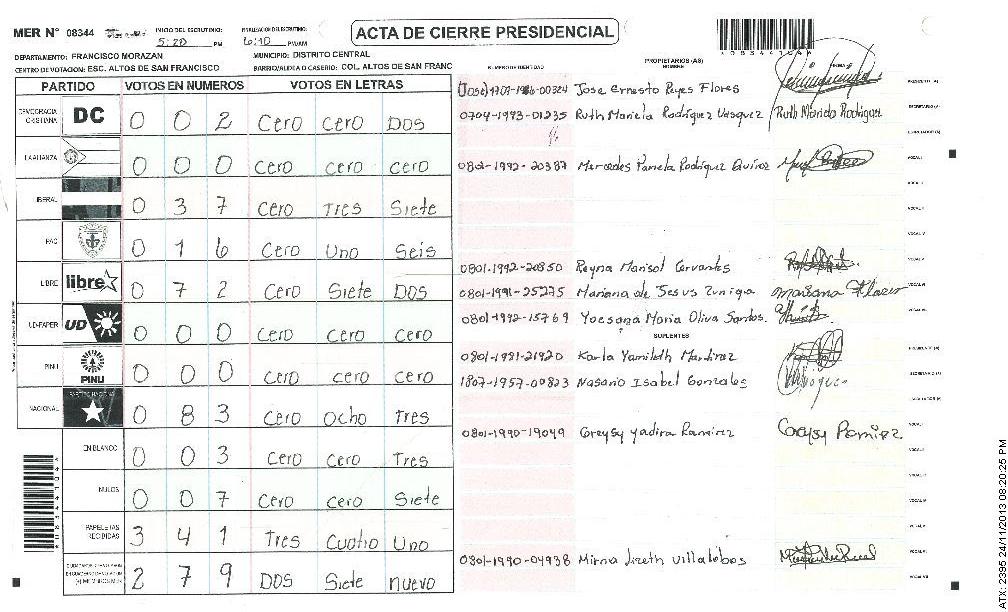 MER N° 08344 INICIO DEL ESCRUTINIO: 5:20 PM FINALIZACION DEL ESCRUTINIO: 6:10 PM/AM
ACTA DE CIERRE PRESIDENCIAL
DEPARTAMENTO: FRANCISCO MORAZAN MUNICIPIO: DISTRITO CENTRAL
CENTRO DE VOTACION: ESC. ALTOS DE SAN FRANCISCO BARRIO/ALDEA O CASERIO: COL. ALTOS DE SAN FRANC
PARTIDO VOTOS EN NUMEROS VOTOS EN LETRAS
DEMOCRACIA CRISTIANA DC 0 0 2 Cero Cero Dos
LA ALIANZA 0 0 0 cero cero cero
LIBERAL 0 3 7 cero Tres Siete
PAC 0 1 6 Cero Uno Seis
LIBRE libre 0 7 2 Cero Siete Dos
UD-FAPER UD 0 0 0 Cero Cero Cero
PINU PINU 0 0 0 Cero cero cero
NACIONAL 0 8 3 Cero Ocho Tres
EN BLANCO 0 0 3 Cero Cero Tres
NULOS 0 0 7 Cero Cero Siete
PAPELETAS RECIBIDAS 3 4 1 Tres Cuatro Uno
2 7 9 Dos Siete nuevo
NUMERO DE IDENTIDAD PROPIETARIOS (AS)
NOMBRE FIRMA
Jose Ernesto Reyes Flores PRESIDENTE (A)
0704-1993-01235 Ruth Mariela Rodriguez Vasquez Ruth Mariela Rodriguez SECRETARIO (A)
ESCRUTADOR (A)
0801-1992-20387 Mercedes Pamela Rodriguez Quiroz VOCAL I
VOCAL II
VOCAL III
VOCAL IV
0801-1992-20850 Reyna Marisol Cervantes VOCAL V
0801-1991-25275 Mariana de Jesus Zuniga Mariana Flores VOCAL VI
0801-1992-15769 Yoesana Maria Oliva Santos. VOCAL VII
SUPLENTES
0801-1981-21920 Karla Yamileth Martinez PRESIDENTE (A)
1807-1957-00823 Nasario Isabel Gonzales SECRETARIO (A)
ESCRUTADOR (A)
0801-1990-19049 Greysy Yadira Ramirez Greysy Ramirez VOCAL I
VOCAL II
VOCAL III
VOCAL IV
VOCAL V
0801-1990-04938 Mirna Lizeth Villalobos VOCAL VI
VOCAL VII
ATX: 2395 24/11/2013 08:20:25 PM